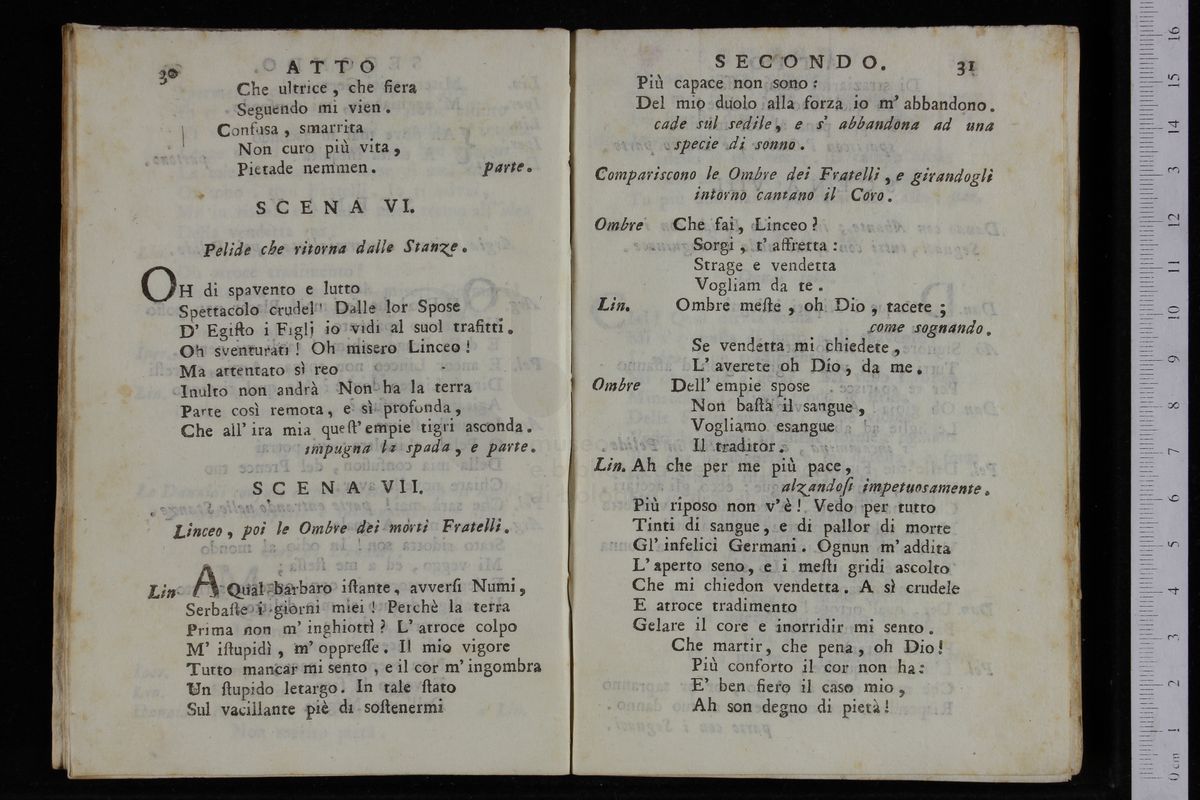 30 ATTO
Che ultrice, che fiera
Seguendo mi vien.
Confusa, smarrita
Non curo più vita,
Pietade nemmen. parte.
SCENA VI.
Pelide che ritorna dalle Stanze.
OH di spavento e lutto
Spettacolo crudel! Dalle lor Spose
D' Egiſto i Figlj io vidi al suol trafitti.
Oh sventurati! Oh misero Linceo!
Ma attentato sì reo
Inulto non andrà Non ha la terra
Parte così remota, e sì profonda,
Che all' ira mia queſt' empie tigri asconda.
impugna la spada, e parte.
SCENA VII.
Linceo, poi le Ombre dei morti Fratelli.
Lin. A Qual barbaro iſtante, avverſi Numi,
Serbaſte i giorni miei! Perchè la terra
Prima non m' inghiottì? L' atroce colpo
M' iſtupidì, m' oppreſſe. Il mio vigore
Tutto mancar mi sento, e il cor m' ingombra
Un ſtupido letargo. In tale ſtato
Sul vacillante piè di soſtenermi
SECONDO. 31
Più capace non sono:
Del mio duolo alla forza io m' abbandono.
cade sul sedile, e s' abbandona ad una
specie di sonno.
Compariscono le Ombre dei Fratelli, e girandogli
intorno cantano il Coro.
Ombre Che fai, Linceo?
Sorgi, t' affretta:
Strage e vendetta
Vogliam da te.
Lin. Ombre meſte, oh Dio, tacete;
come sognando.
Se vendetta mi chiedete,
L' averete oh Dio, da me.
Ombre Dell' empie spose
Non baſta il sangue,
Vogliamo esangue
Il traditor.
Lin. Ah che per me più pace,
alzandoſi impetuosamente.
Più riposo non v' è! Vedo per tutto
Tinti di sangue, e di pallor di morte
Gl' infelici Germani. Ognun m' addita
L' aperto seno, e i meſti gridi ascolto
Che mi chiedon vendetta. A sì crudele
E atroce tradimento
Gelare il core e inorridir mi sento.
Che martir, che pena, oh Dio!
Più conforto il cor non ha:
E' ben fiero il caso mio,
Ah son degno di pietà!